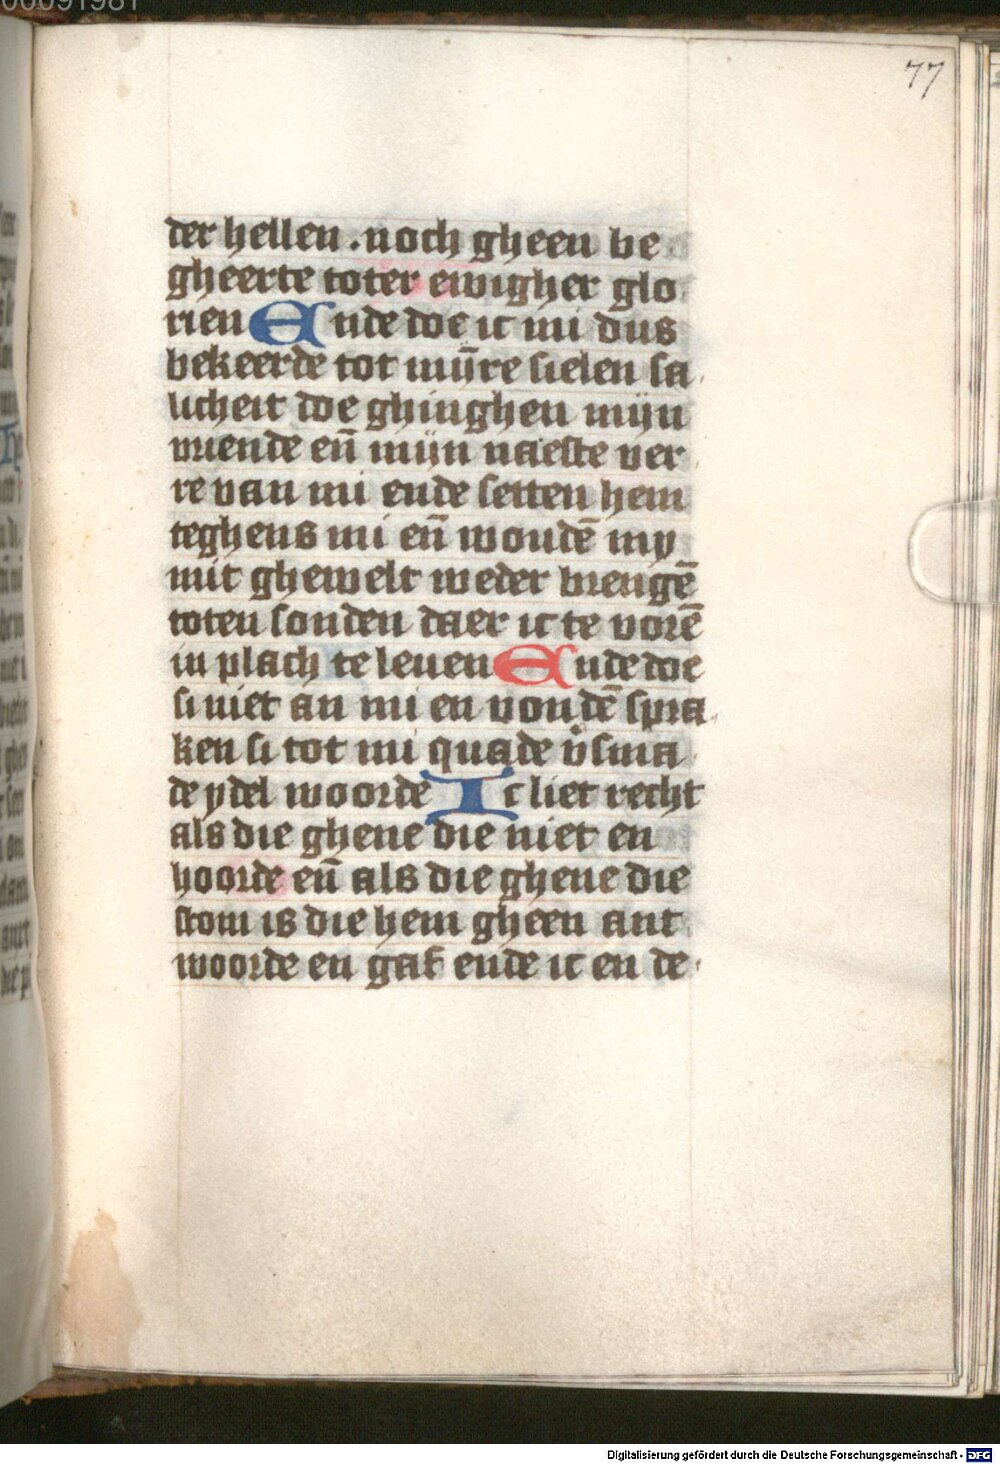 00091981
77
der hellen . noch gheen be
gheerte toter ewigher glo
rien Ende doe ic mi dus
bekeerde tot mijn̄re sielen sa
licheit doe ghinghen mijn
vriende en̄ mijn naeste ver
re van mi ende setten hem
teghens mi en̄ wondē my
mit ghewelt weder brengē
toten sonden daer ic te vorē
in plach te leuen Ende doe
si niet an mi en vondē spra
ken si tot mi quade v̄sma
de ydel woorde Ic liet recht
als die ghene die niet en
hoorde en̄ als die ghene die
stom is die hem gheen ant
woorde en gaf ende ic en de
Digitalisierung gefördert durch die Deutsche Forschungsgemeinschaft - DFG